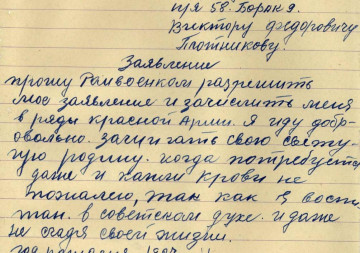 п/я 58. Боран 9.
Виктору Федоровичу
Плотникову.
Заявление
прошу Раивоенком разрешить
мое заявление и зачислить меня
в ряды красной Арми. Я иду добр-
овольно. защищать свою
родину. когда потребуется
даже и капли крови не
пожалею, так как я воспи
тан. в советском духе. и даже
не щадя своей жизни.